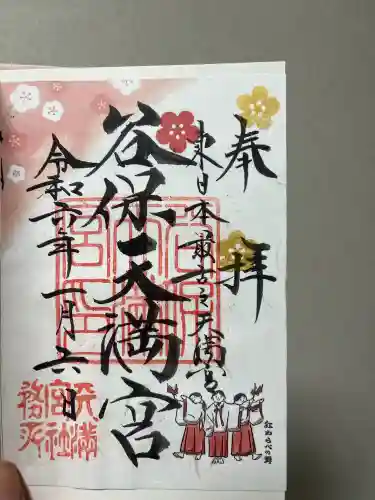 奉拝
東日本最古之天満宮
谷保天満宮
令和六年一月六日
天満宮社務所
紅わらべの舞